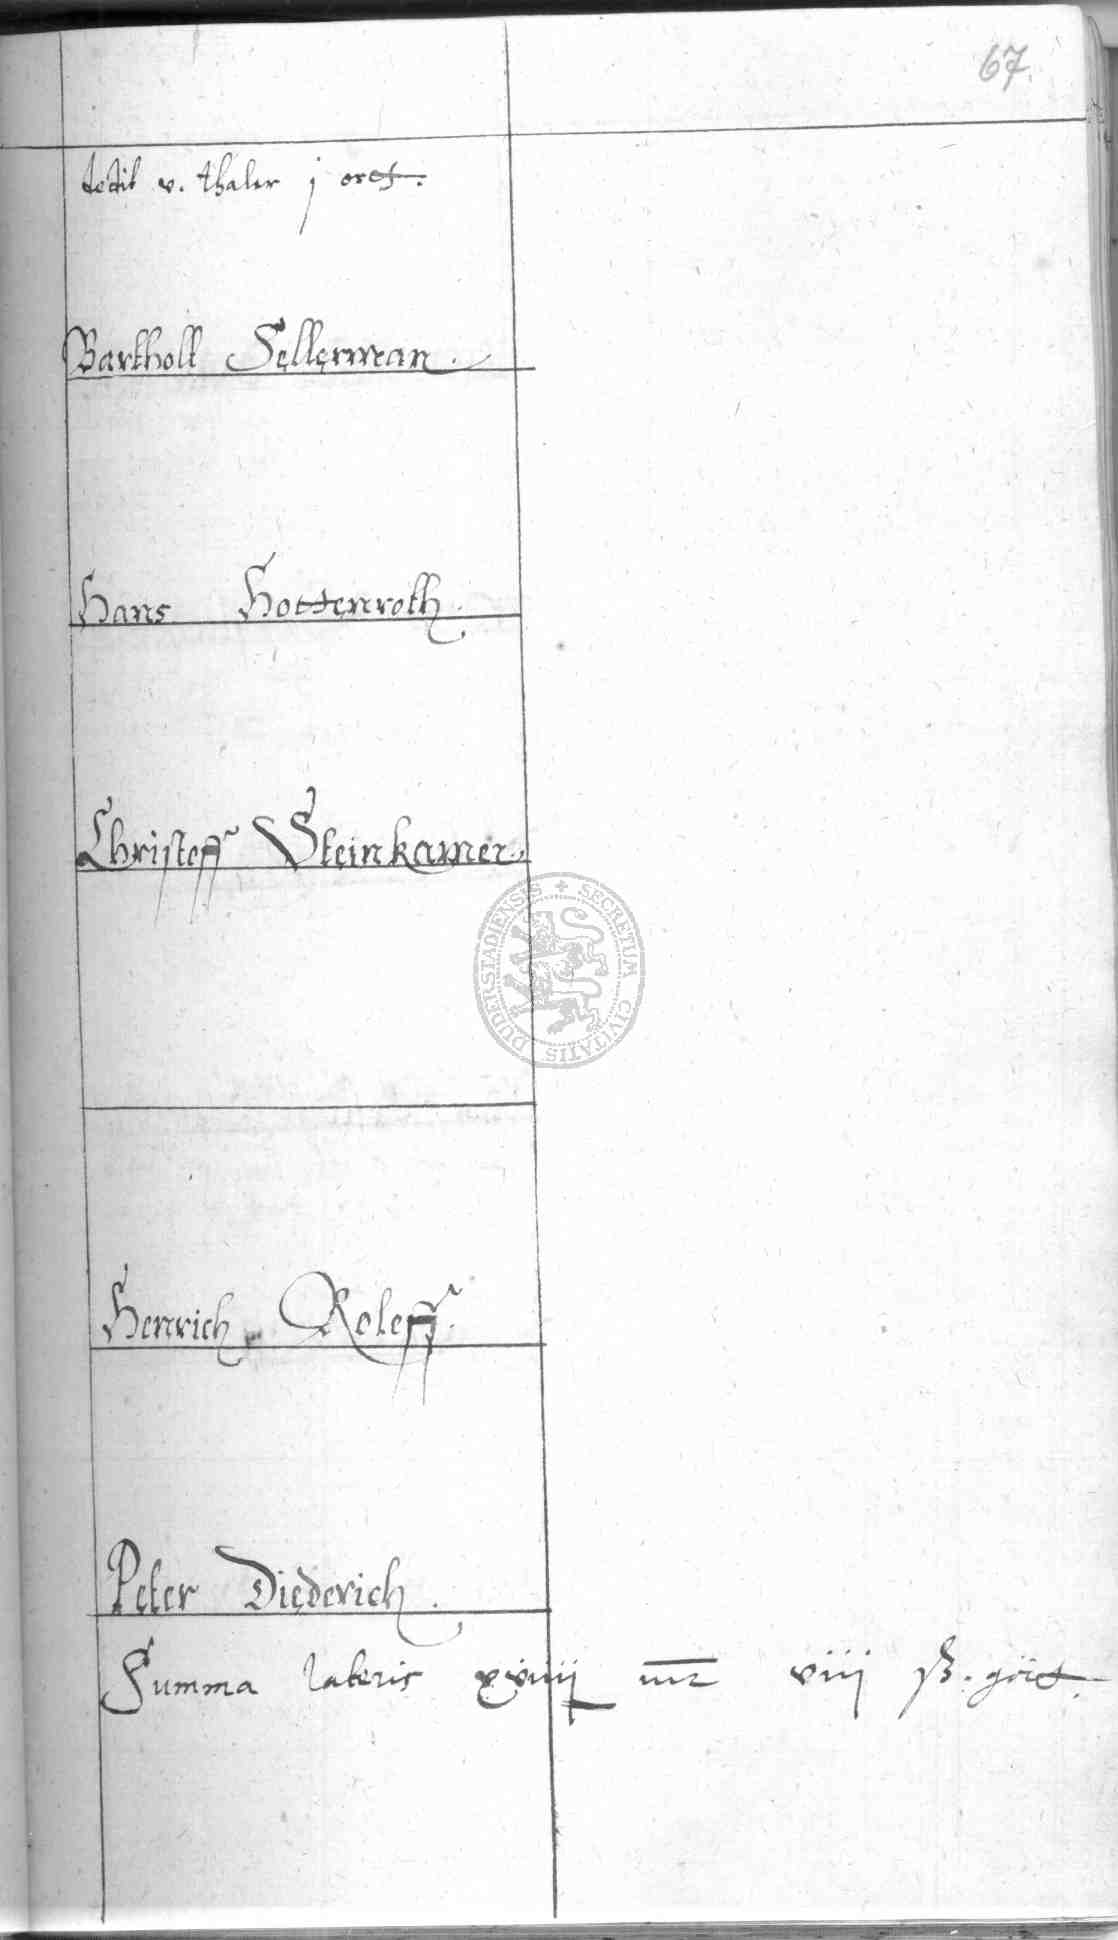 67
dedit v. thaler j ort.
Barthold Sellerman.
Hans Hottenroth.
Christoff Steinkamer.
DUDERSTADIENSIS + SECRETUM CIVITATIS
Henrich Roleff.
Peter Diederich.
Summa lateris mr viij ß.